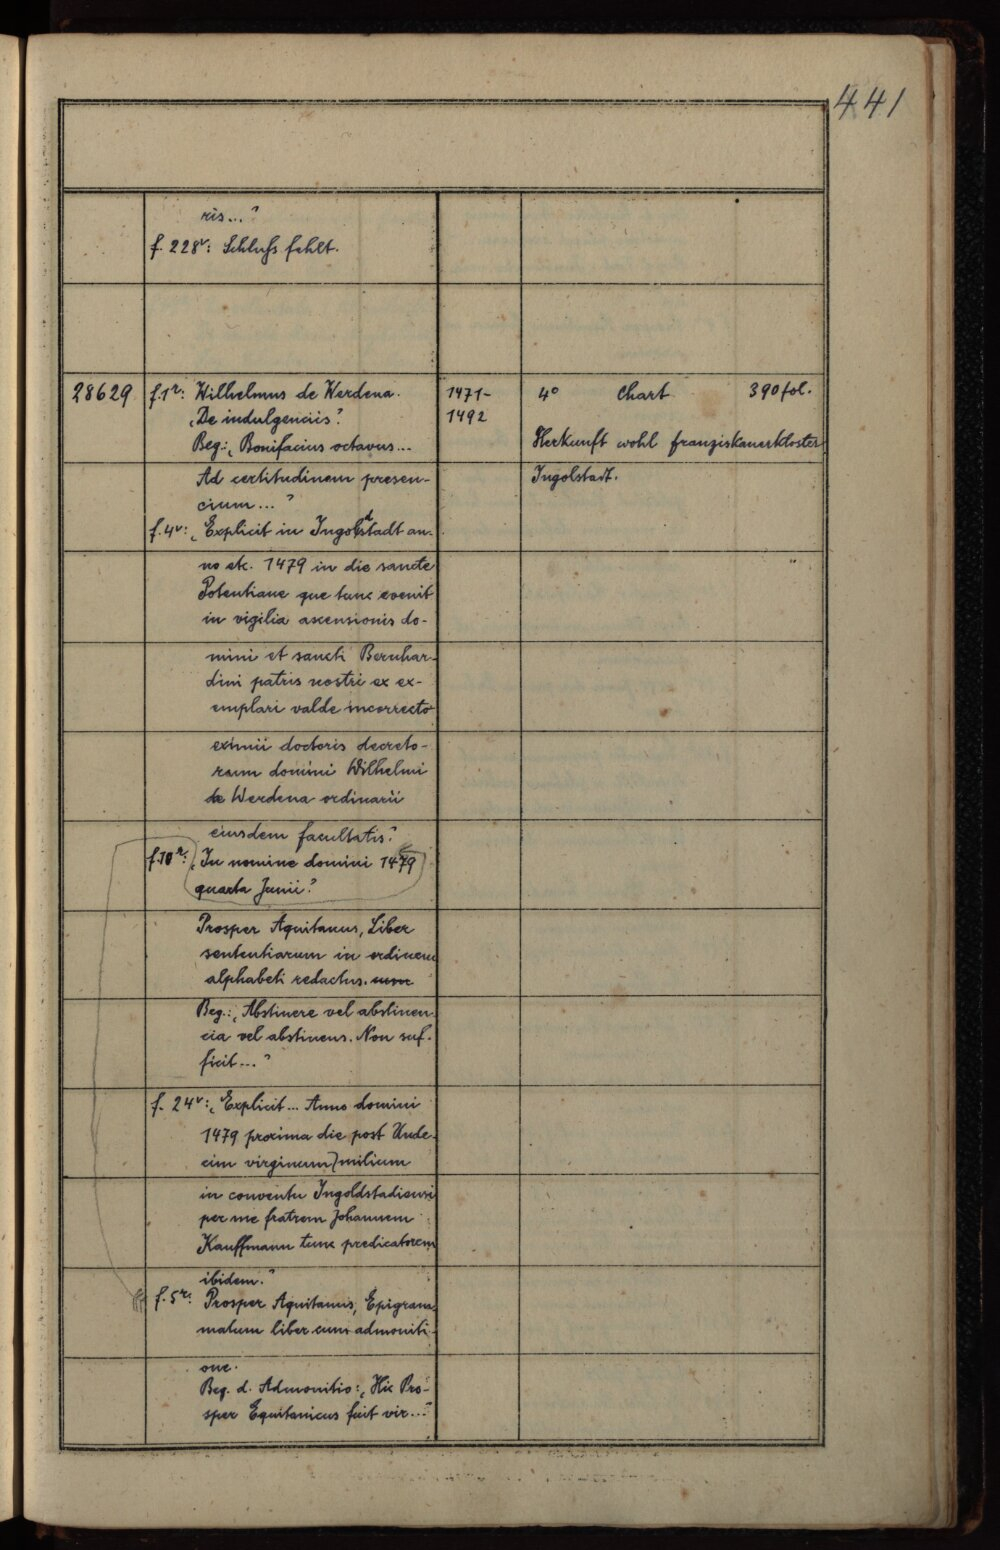 441
ris...?
f. 228v: Schluß fehlt.
28629 f.1r: Wilhelmus de Werdena. 1471- 4° Chart 390 fol.
„De indulgenciis“ 1492
Beg.: „Bonifacius octavus... Herkunft wohl Franziskanerkloster
Ad certitudinem presen- Ingolstadt.
cium...“
f. 4v: „Explicit in Ingolstadt an-
no etc. 1479 in die sancte
Potentiane que tunc evenit
in vigilia ascensionis do-
mini et sancti Bernhar-
dini patris nostri ex ex-
emplari valde incorrecto
eximii doctoris decreto-
rum domini Wilhelmi
de Werdena ordinarii
eiusdem facultatis“
f. 10r: „In nomine domini 1479
quarta Junii“
Prosper Aquitanus, Liber
sententiarum in ordinem
alphabeti redactus.
Beg.: „Abstinere vel abstinen-
cia vel abstinens. Non suf-
ficit...“
f. 24v: „Explicit... Anno domini
1479 proxima die post Unde-
cim virginum milium
in conventu Ingoldstadiensi
per me fratrem Johannem
Kauffmann tunc predicatorem
ibidem.“
f. 5r: Prosper Aquitanus, Epigram-
matum liber cum admoniti-
one.
Beg. d. Admonitio: „Hic Pro-
sper Equitanicus fuit vir...“